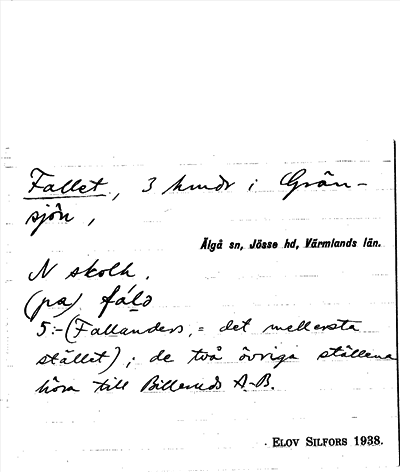 Fallet, 3 hmdr i Grän-
sjön,
Älgå sn, Jösse hd, Värmlands län.
N skolh.
(på) fálə
5:- (Fallanders, = det mellersta
stället); de två övriga ställena
höra till Billeruds A-B.
ELOV SILFORS 1938.